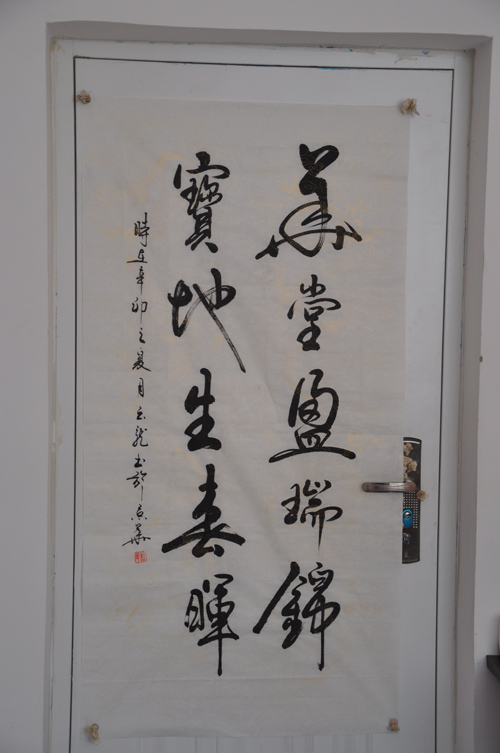 華堂盈瑞錦
寶地生春暉
時在辛卯之夏月云龍書於京華